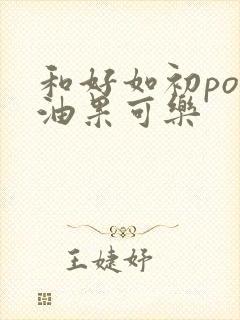 和好如初po
油果可樂
王婕妤